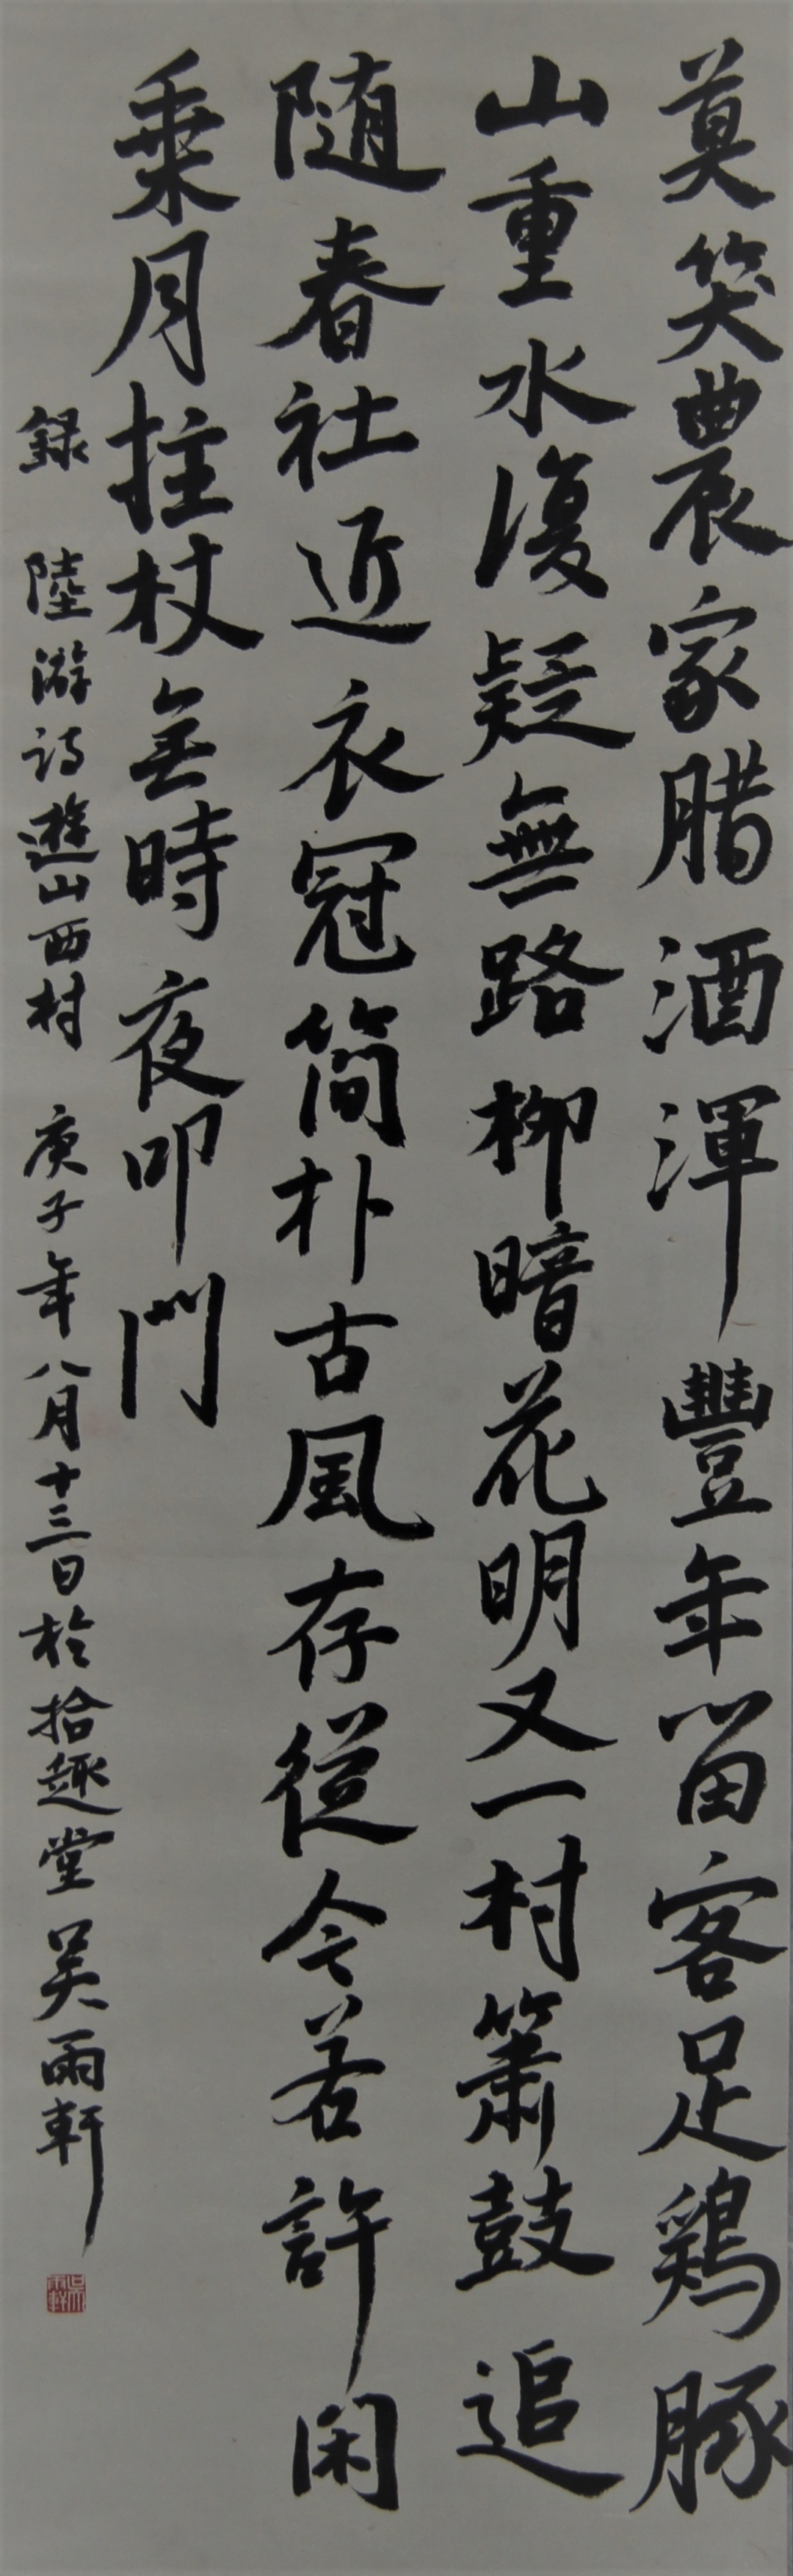 莫笑農家腊酒渾豐年留客足鷄豚
山重水復疑無路柳暗花明又一村簫鼓追
随春社近衣冠简朴古風存從今若許闲
乘月拄杖無時夜叩門
録 陸游詩遊山西村 庚子年八月十三日於拾趣堂吴雨軒
吴雨軒